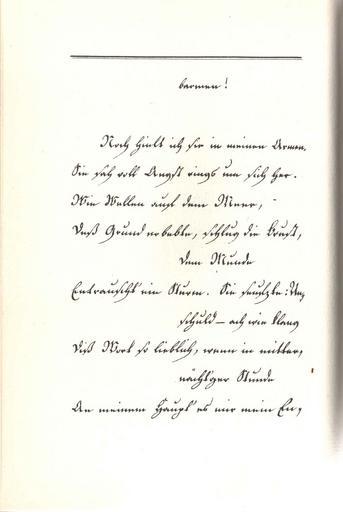 barmen!
Noch hielt ich sie in meinen Armen.
Sie sah voll Angst rings um sich her.
Wie Wellen auf dem Meer,
Daß Grund erbebte, schlug die Brust,
dem Munde
Entrauscht' ein Sturm. Sie seufzte: Un-
schuld — ach wie klang
Diß Wort so lieblich, wenn in mitter-
nächt'ger Stunde
An meinem Haupt es mir mein En-